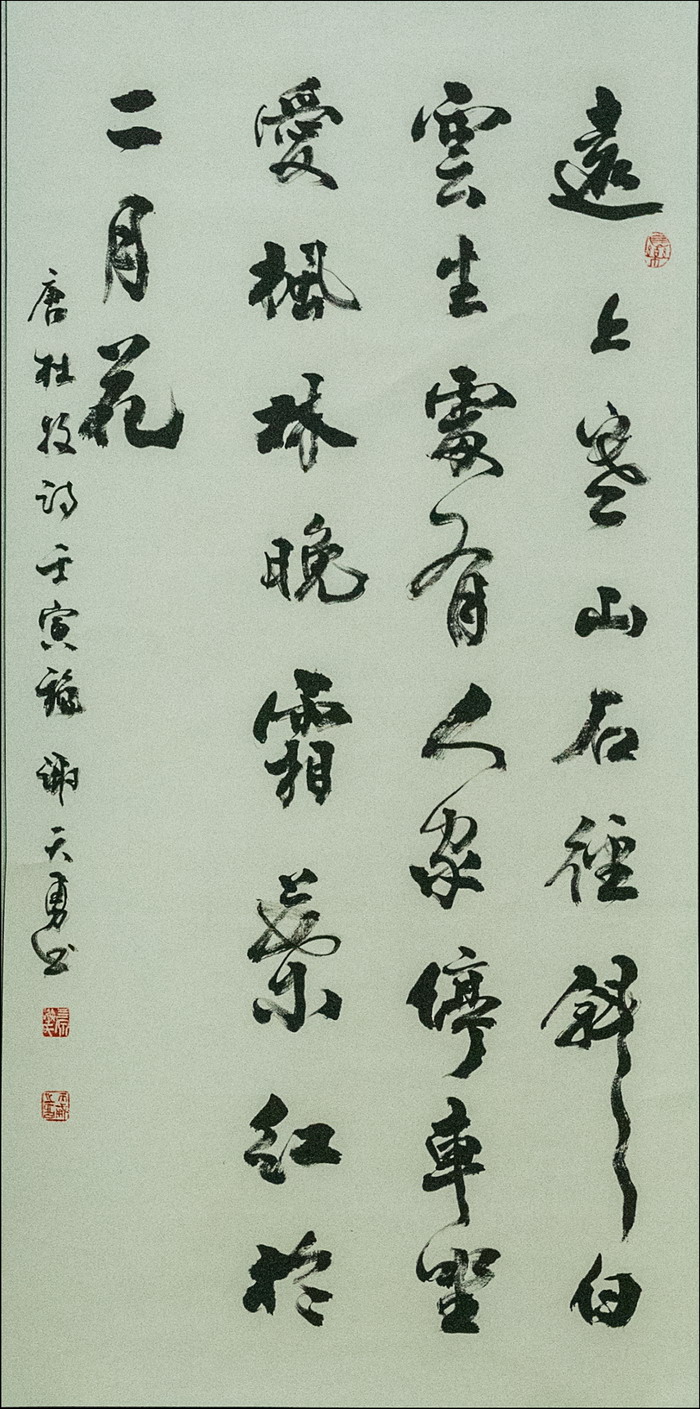 遠上寒山石徑斜白
雲生處有人家停車坐
愛楓林晚霜葉紅於
二月花
唐杜牧詩壬寅穐謝天勇书